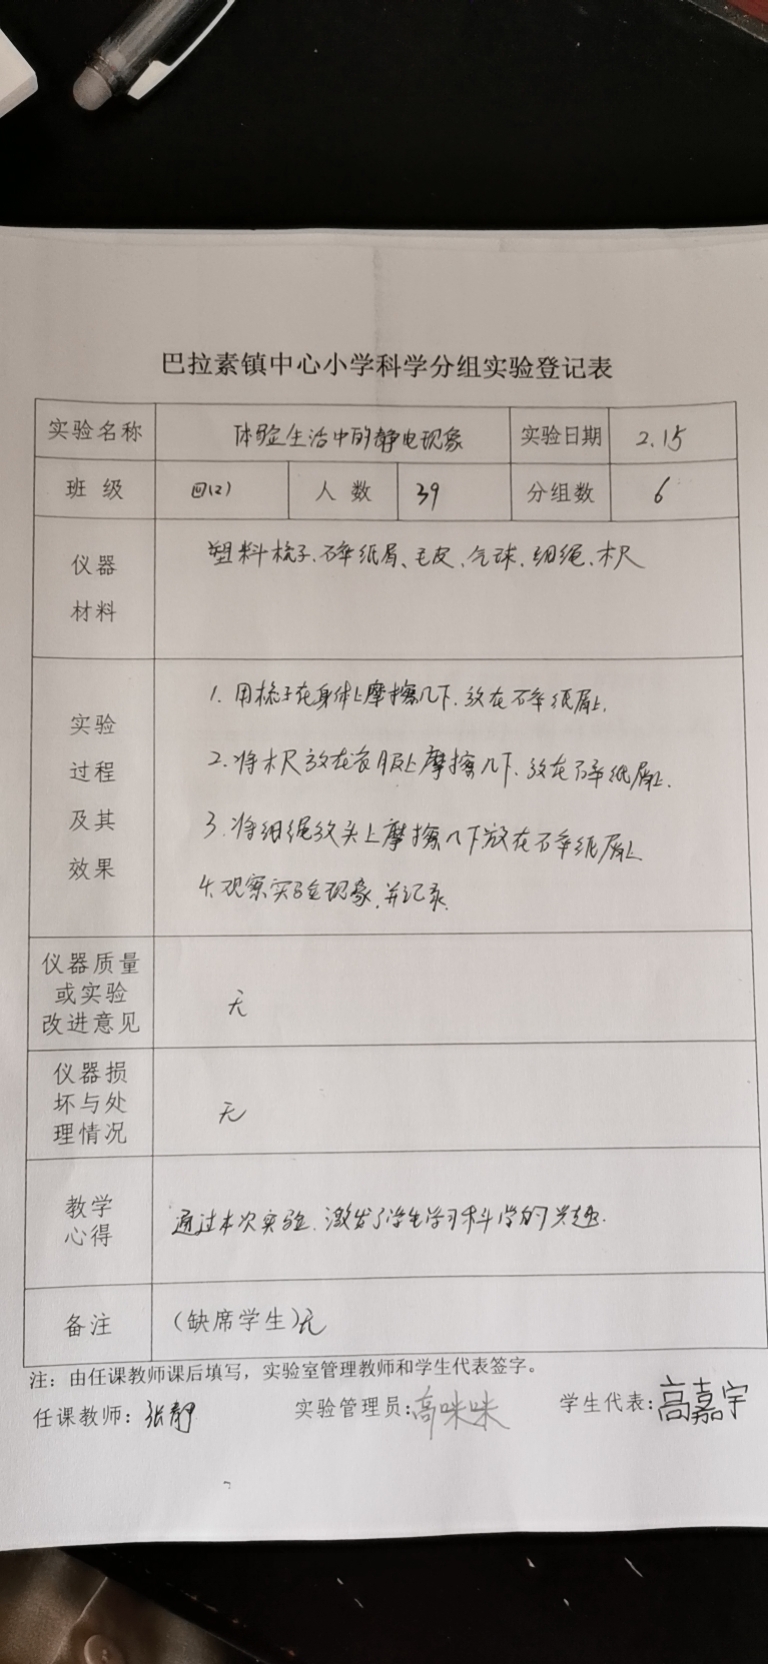 巴拉素镇中心小学科学分组实验登记表
实验名称 体验生活中的静电现象 实验日期 2.15
班 级 四(2) 人 数 39 分组数 6
仪器
材料
塑料梳子、碎纸屑、毛皮、气球、细绳、木尺
实验
过程
及其
效果
1. 用梳子在身体上摩擦几下.放在碎纸屑上.
2. 将木尺放在衣服上摩擦几下.放在碎纸屑上.
3. 将细绳放头上摩擦几下放在碎纸屑上
4. 观察实验现象.并记录.
仪器质量
或实验
改进意见
无
仪器损
坏与处
理情况
无
教学
心得
通过本次实验.激发了学生学习科学的兴趣.
备注 (缺席学生)无
注：由任课教师课后填写，实验室管理教师和学生代表签字。
任课教师：张静 实验管理员:高咪咪 学生代表:高嘉宇